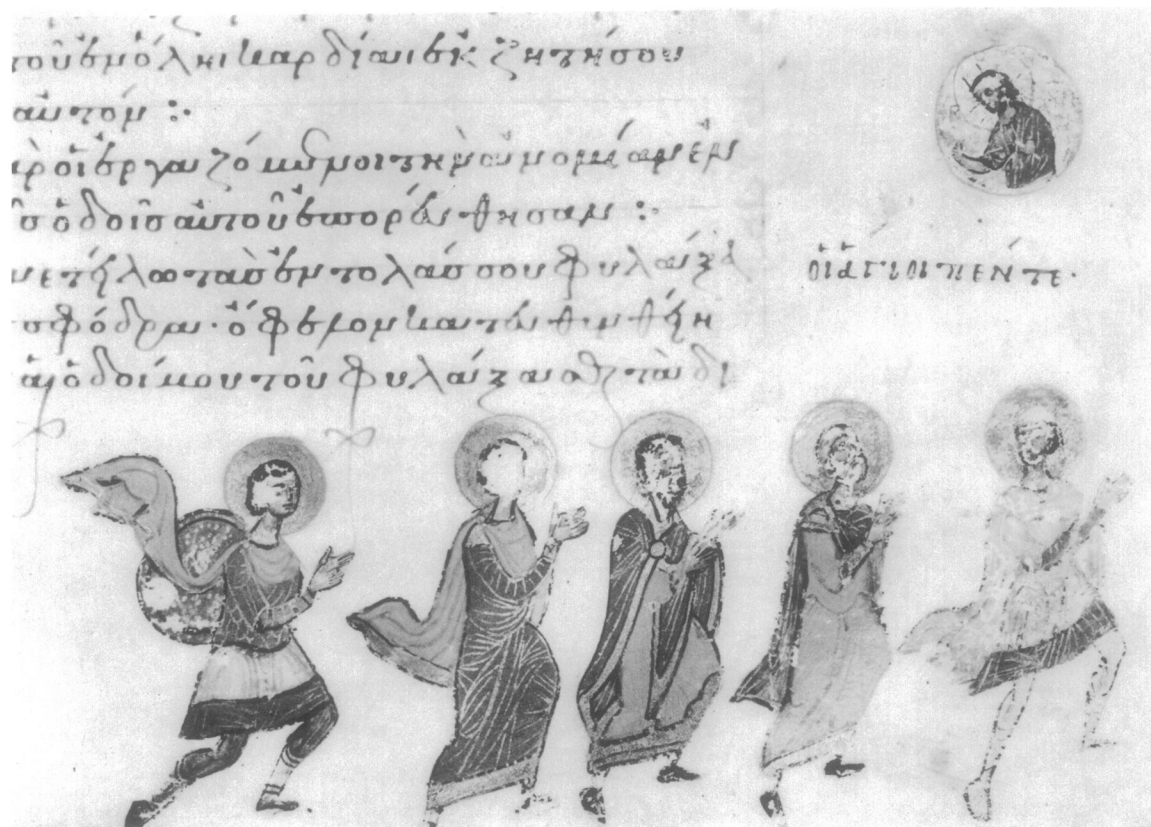 τοῦ ἐν ὅληι καρδίαι ἐκζητήσου
αὐτόν :
ὰρ οἱ ἐργαζόμενοι τὴν ἀνομίαν ἐν
ς ὁδοῖς αὐτοῦ ἐπορεύθησαν :
νετείλω τὰς ἐντολάς σου φυλάξα
σφόδρα· ὄφελον κατευθυνθείη
αἱ ὁδοί μου τοῦ φυλάξασθαι τὰ δι
οἱ ἅγιοι πέντε·